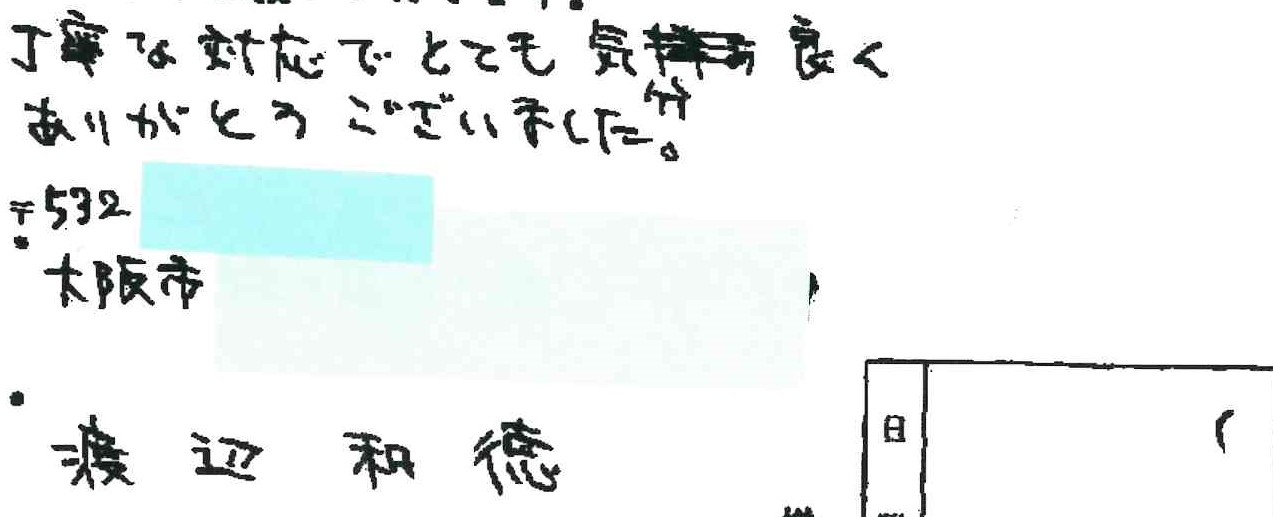 丁寧な対応でとても気分良く
ありがとうございました。
〒532
大阪市
渡辺和徳
日